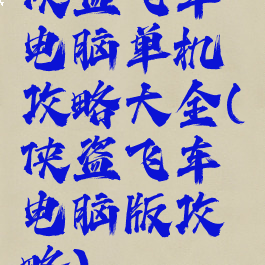 侠盗飞车
电脑单机
攻略大全(
侠盗飞车
电脑版攻
略)